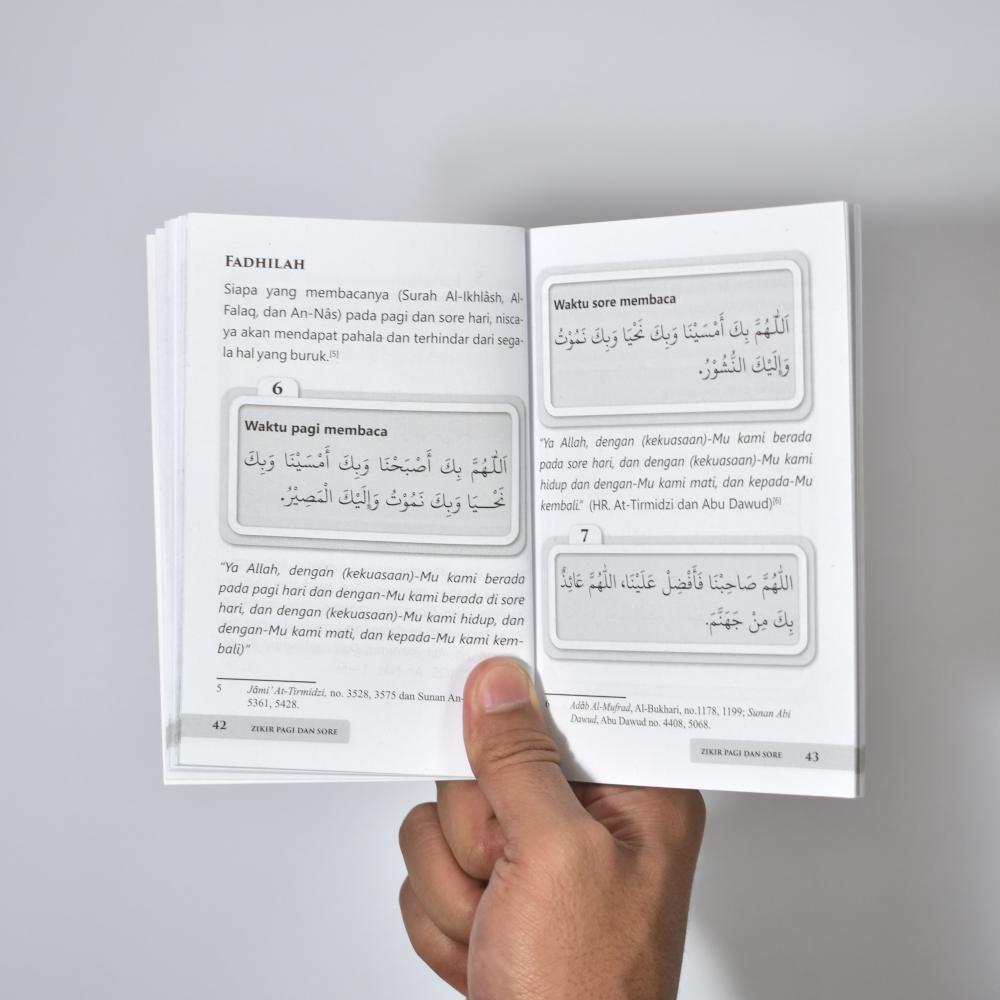 FADHILAH
Siapa yang membacanya (Surah Al-Ikhlâsh, Al-
Falaq, dan An-Nâs) pada pagi dan sore hari, nisca-
ya akan mendapat pahala dan terhindar dari sega-
la hal yang buruk.[5]
6
Waktu pagi membaca
اَللّٰهُمَّ بِكَ أَصْبَحْنَا وَبِكَ أَمْسَيْنَا وَبِكَ
نَحْـــيَا وَبِكَ نَمُوْتُ وَإِلَيْكَ الْمَصِيْرُ.
"Ya Allah, dengan (kekuasaan)-Mu kami berada
pada pagi hari dan dengan-Mu kami berada di sore
hari, dan dengan (kekuasaan)-Mu kami hidup, dan
dengan-Mu kami mati, dan kepada-Mu kami kem-
bali)"
5 Jâmi' At-Tirmidzi, no. 3528, 3575 dan Sunan An-
5361, 5428.
42 ZIKIR PAGI DAN SORE
Waktu sore membaca
اَللّٰهُمَّ بِكَ أَمْسَيْنَا وَبِكَ نَحْيَا وَبِكَ نَمُوْتُ
وَإِلَيْكَ النُّشُوْرُ.
"Ya Allah, dengan (kekuasaan)-Mu kami berada
pada sore hari, dan dengan (kekuasaan)-Mu kami
hidup dan dengan-Mu kami mati, dan kepada-Mu
kembali." (HR. At-Tirmidzi dan Abu Dawud)[6]
7
اَللّٰهُمَّ صَاحِبْنَا فَأَفْضِلْ عَلَيْنَا، اللّٰهُمَّ عَائِذٌ
بِكَ مِنْ جَهَنَّمَ.
6 Adâb Al-Mufrad, Al-Bukhari, no.1178, 1199; Sunan Abi
Dawud, Abu Dawud no. 4408, 5068.
ZIKIR PAGI DAN SORE 43